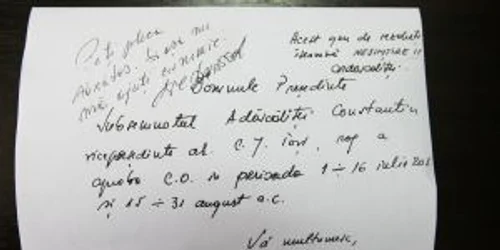 Poți pleca
Absolut. Și așa nu
mă ajuți cu nimic.
Acest gen de rezoluție
înseamnă NESIMȚIRE și
Domnule Președinte
Subsemnatul Adăscăliței Constantin
vicepreședinte al C.J. Iași, rog a
aproba C.O. în perioada 1 ÷ 16 iulie
și 15 ÷ 31 august a.c.
Vă mulțumesc,